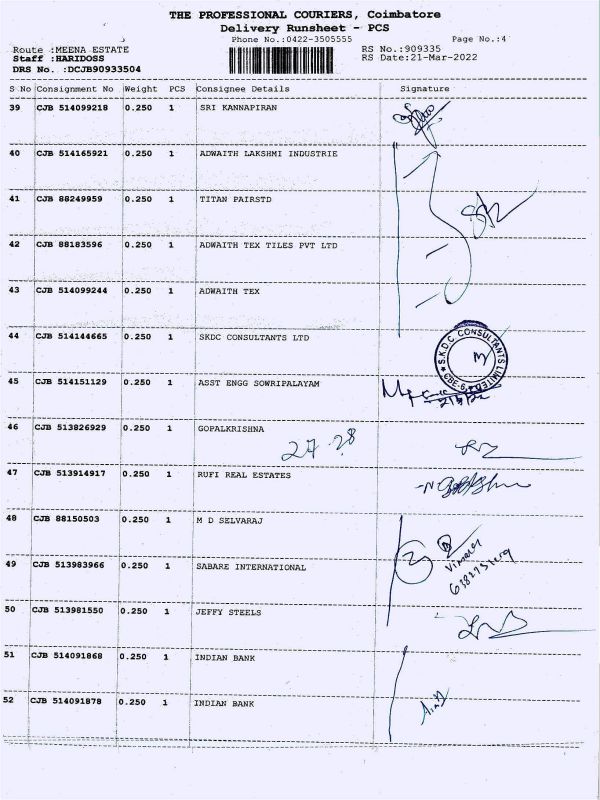 THE PROFESSIONAL COURIERS, Coimbatore
Delivery Runsheet - PCS
Phone No.:0422-3505555 Page No.:4
Route :MEENA ESTATE RS No.:909335
Staff :HARIDOSS RS Date:21-Mar-2022
DRS No. :DCJB90933504
S No Consignment No Weight PCS Consignee Details Signature
39 CJB 514099218 0.250 1 SRI KANNAPIRAN
40 CJB 514165921 0.250 1 ADWAITH LAKSHMI INDUSTRIE
41 CJB 88249959 0.250 1 TITAN PAIRSTD
42 CJB 88183596 0.250 1 ADWAITH TEX TILES PVT LTD
43 CJB 514099244 0.250 1 ADWAITH TEX
44 CJB 514144665 0.250 1 SKDC CONSULTANTS LTD
S.K.D.C CONSULTANTS LIMITED
CBE-6
45 CJB 514151129 0.250 1 ASST ENGG SOWRIPALAYAM
46 CJB 513826929 0.250 1 GOPALKRISHNA
27 28
47 CJB 513914917 0.250 1 RUFI REAL ESTATES
48 CJB 88150503 0.250 1 M D SELVARAJ
49 CJB 513983966 0.250 1 SABARE INTERNATIONAL
50 CJB 513981550 0.250 1 JEFFY STEELS
51 CJB 514091868 0.250 1 INDIAN BANK
52 CJB 514091878 0.250 1 INDIAN BANK